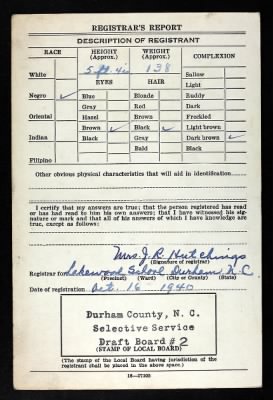 REGISTRAR'S REPORT
DESCRIPTION OF REGISTRANT
RACE HEIGHT (Approx.) WEIGHT (Approx.) COMPLEXION
White 5 ft. 4 in 138 Sallow
EYES HAIR Light
Negro ✓ Blue Blonde Ruddy
Gray Red Dark
Oriental Hazel Brown Freckled
Brown ✓ Black ✓ Light brown
Indian Black Gray Dark brown ✓
Bald Black
Filipino
Other obvious physical characteristics that will aid in identification
I certify that my answers are true; that the person registered has read
or has had read to him his own answers; that I have witnessed his sig-
nature or mark and that all of his answers of which I have knowledge are
true, except as follows:
Mrs. J. R. Hutchings
(Signature of registrar)
Registrar for Lakewood School Durham, N.C.
(Precinct) (Ward) (City or County) (State)
Date of registration Oct. 16 1940
Durham County, N. C.
Selective Service
Draft Board #2
(STAMP OF LOCAL BOARD)
(The stamp of the Local Board having jurisdiction of the
registrant shall be placed in the above space.)